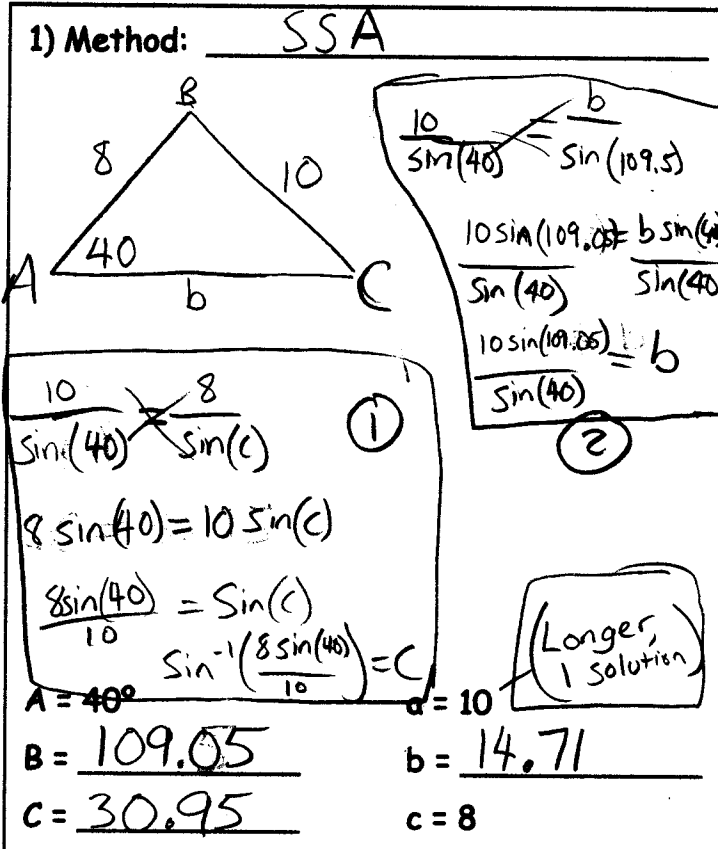 1) Method: SSA
B
8
10
A
40
b
C
10/sin(40) = b/sin(109.5)
10 sin(109.05)/sin(40) = b sin(40/sin(40
10 sin(109.05)/sin(40) = b
2
10/sin(40) = 8/sin(C)
1
8 sin(40) = 10 sin(C)
8sin(40)/10 = Sin(C)
Sin⁻¹(8 sin(40)/10) = C
(Longer,
1 solution)
A = 40°
a = 10
B = 109.05
b = 14.71
C = 30.95
c = 8